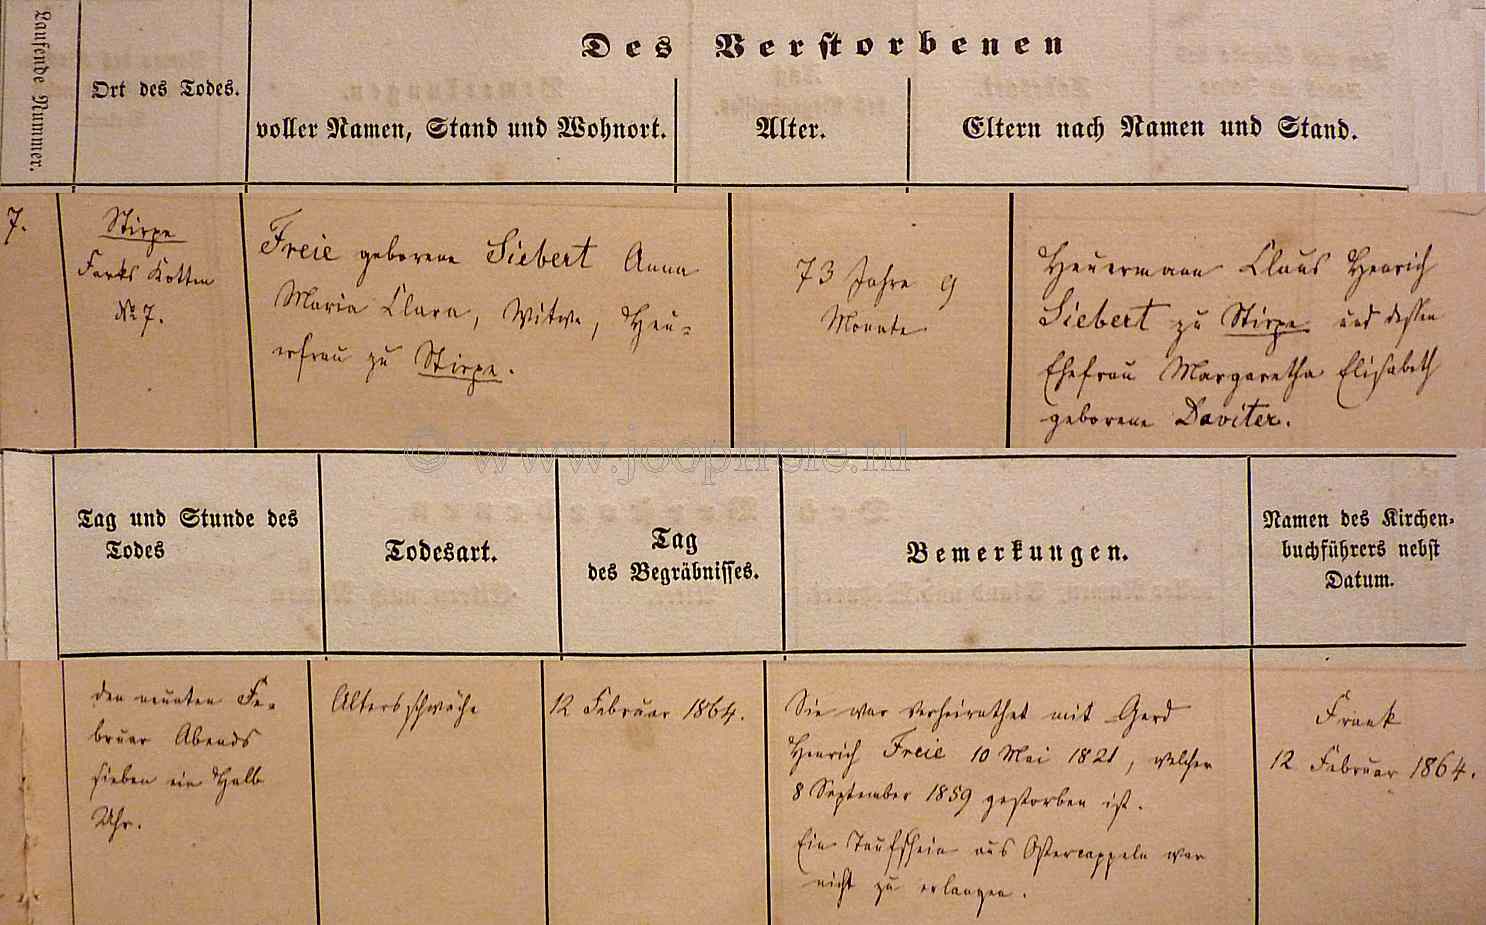 Laufende Nummer.
Ort des Todes.
Des Verstorbenen
voller Namen, Stand und Wohnort.
Alter.
Eltern nach Namen und Stand.
7.
Stirpe
Farks Kotten
№ 7.
Freie geborene Siebert Anna
Maria Clara, Witwe, Heu-
erfrau zu Stirpe.
73 Jahre 9
Monate
Heuermann Claus Henrich
Siebert zu Stirpe und dessen
Ehefrau Margaretha Elisabeth
geborene Daviter.
© www.joopfreie.nl
Tag und Stunde des
Todes
Todesart.
Tag
des Begräbnisses.
Bemerkungen.
Namen des Kirchen-
buchführers nebst
Datum.
den neunten Fe-
bruar Abends
sieben ein halb
Uhr.
Altersschwäche
12 Februar 1864.
Sie war verheirathet mit Gerd
Henrich Freie 10 Mai 1821, welcher
8 September 1859 gestorben ist.
Ein Taufschein aus Ostercappeln war
nicht zu erlangen.
Frank
12 Februar 1864.